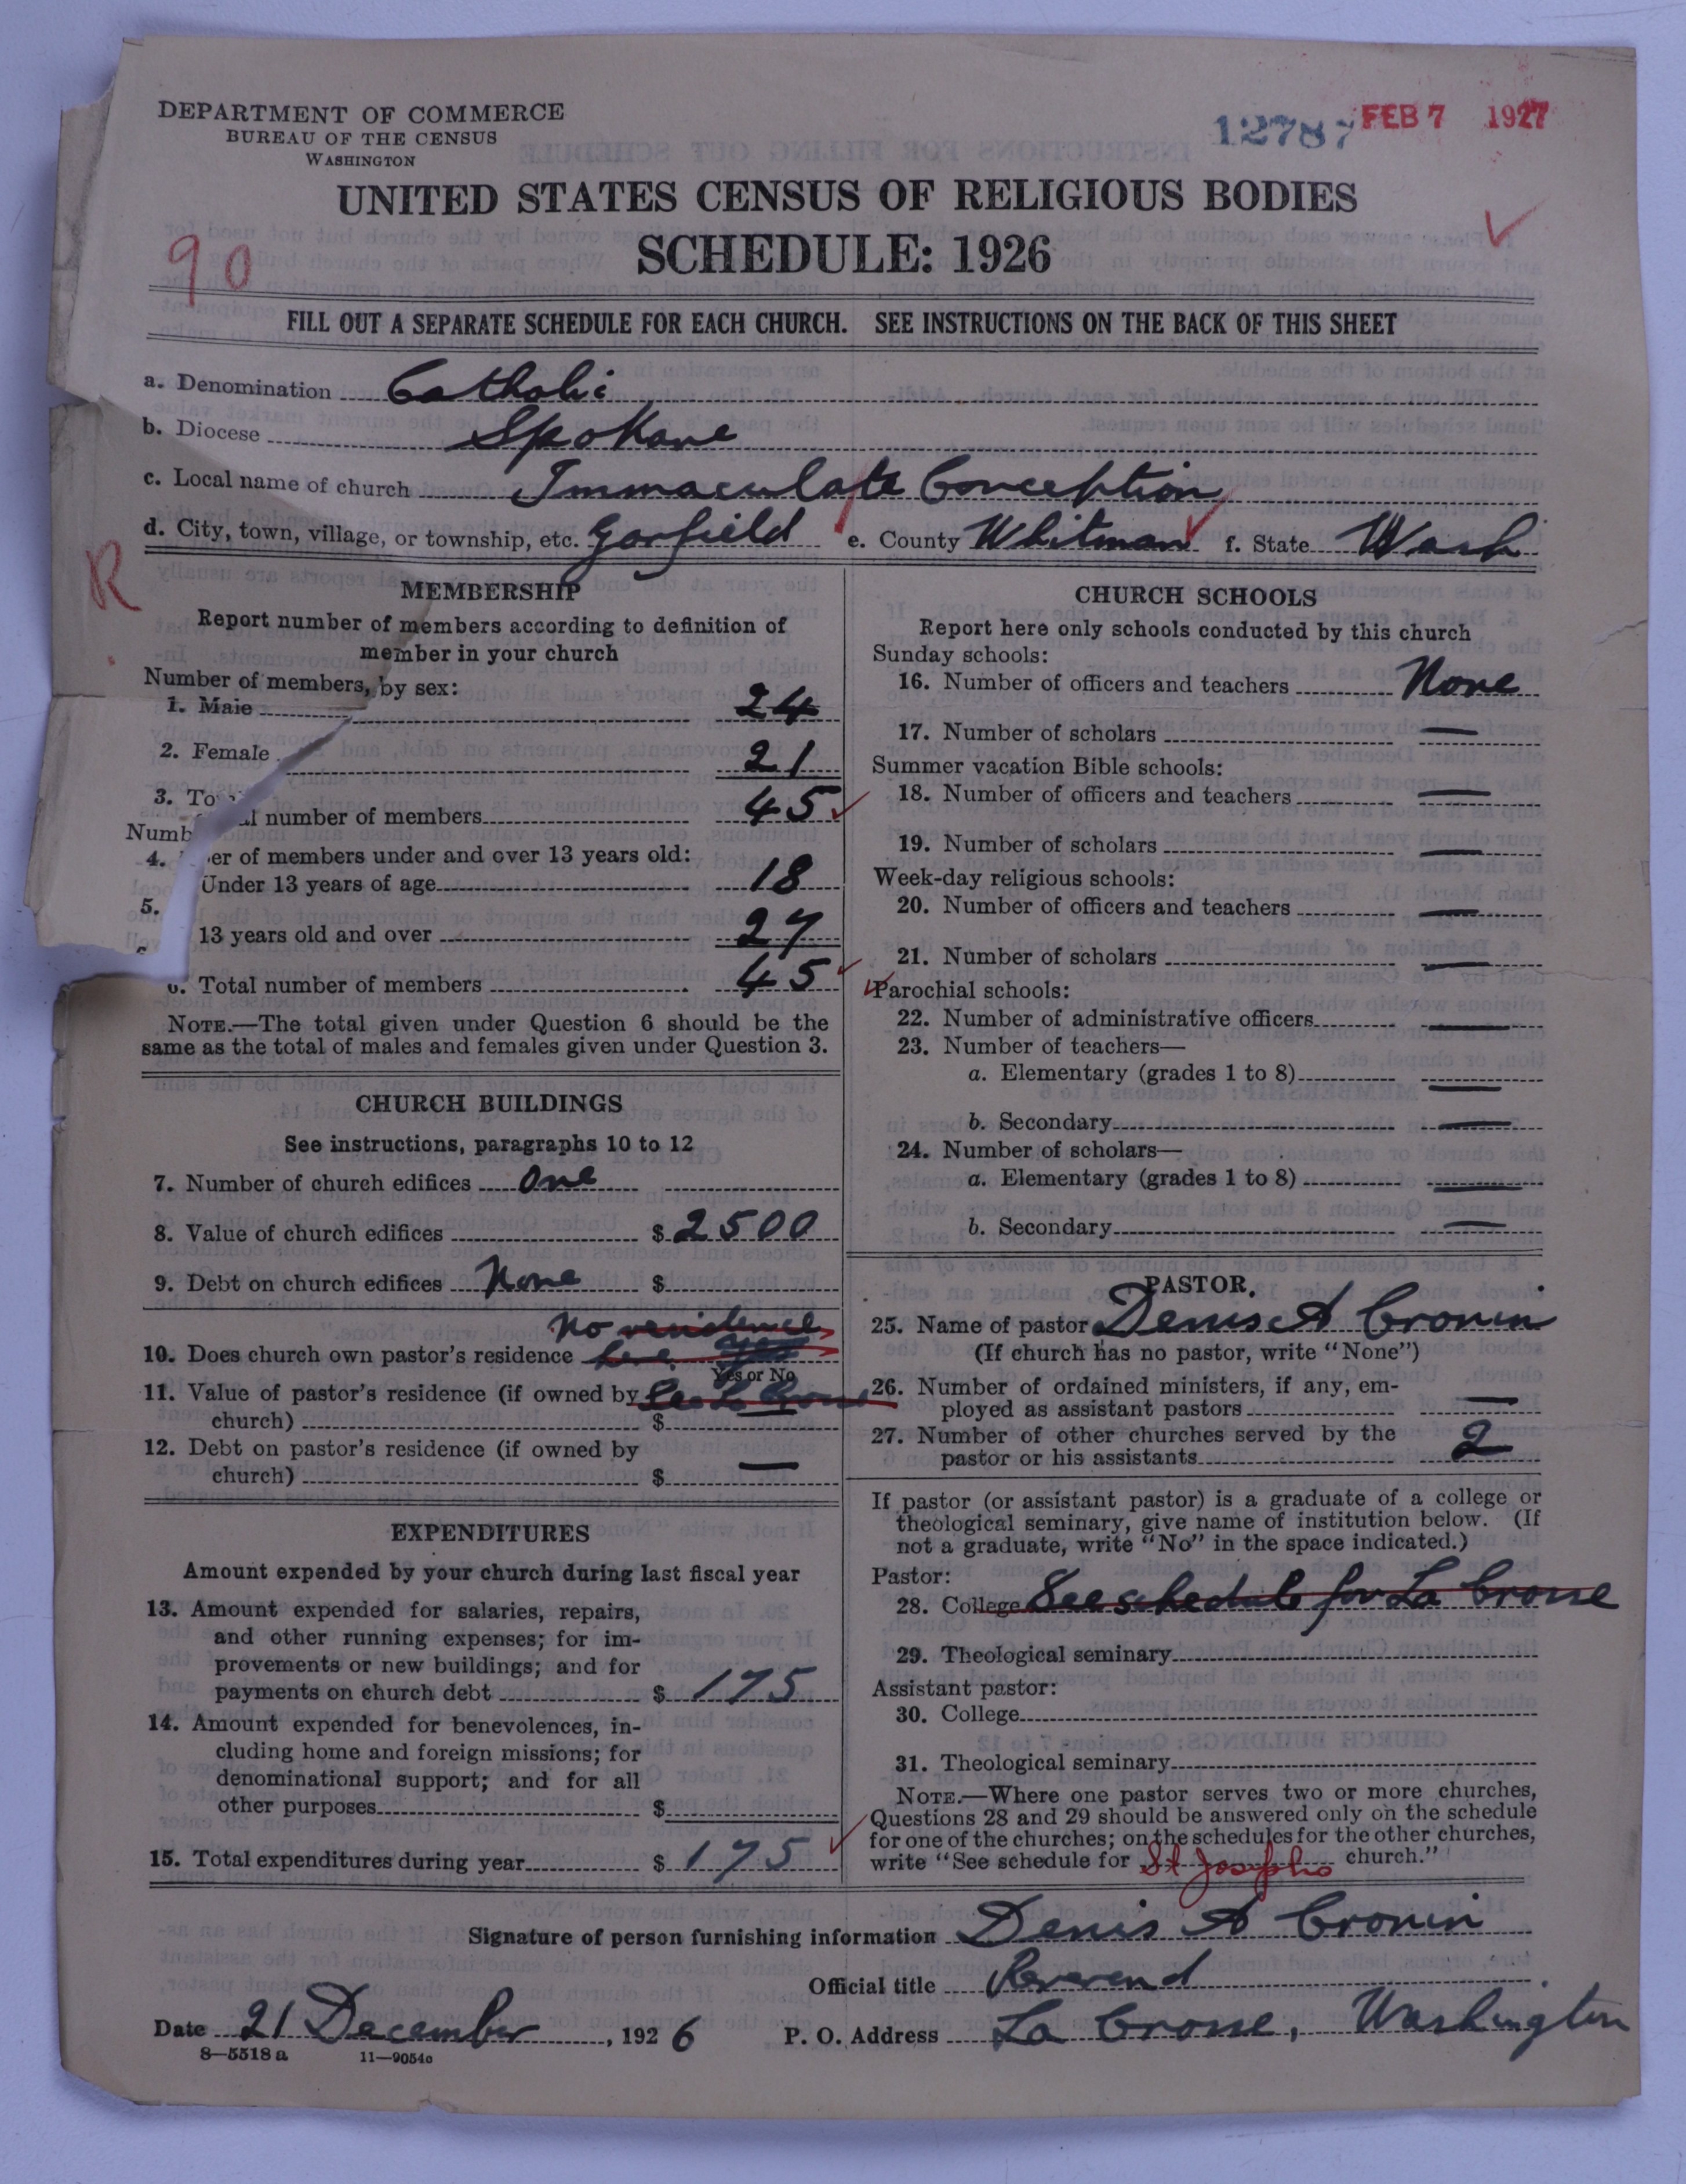 DEPARTMENT OF COMMERCE
BUREAU OF THE CENSUS
WASHINGTON
12787 FEB 7 1927
UNITED STATES CENSUS OF RELIGIOUS BODIES
SCHEDULE: 1926
90
FILL OUT A SEPARATE SCHEDULE FOR EACH CHURCH. SEE INSTRUCTIONS ON THE BACK OF THIS SHEET
a. Denomination Catholic
b. Diocese Spokane
c. Local name of church Immaculate Conception
d. City, town, village, or township, etc. Garfield e. County Whitman f. State Wash
R
MEMBERSHIP
Report number of members according to definition of
member in your church
Number of members, by sex:
1. Male 24
2. Female 21
3. Total number of members 45
Number of members under and over 13 years old:
4. Under 13 years of age 18
5. 13 years old and over 27
6. Total number of members 45
NOTE.—The total given under Question 6 should be the
same as the total of males and females given under Question 3.
CHURCH BUILDINGS
See instructions, paragraphs 10 to 12
7. Number of church edifices One
8. Value of church edifices $ 2500
9. Debt on church edifices None $
No residence
10. Does church own pastor's residence here
Yes or No
11. Value of pastor's residence (if owned by See La Crosse
church) $ —
12. Debt on pastor's residence (if owned by
church) $ —
EXPENDITURES
Amount expended by your church during last fiscal year
13. Amount expended for salaries, repairs,
and other running expenses; for im-
provements or new buildings; and for
payments on church debt $ 175
14. Amount expended for benevolences, in-
cluding home and foreign missions; for
denominational support; and for all
other purposes $
15. Total expenditures during year $ 175
CHURCH SCHOOLS
Report here only schools conducted by this church
Sunday schools:
16. Number of officers and teachers None
17. Number of scholars —
Summer vacation Bible schools:
18. Number of officers and teachers —
19. Number of scholars —
Week-day religious schools:
20. Number of officers and teachers —
21. Number of scholars —
Parochial schools:
22. Number of administrative officers —
23. Number of teachers—
a. Elementary (grades 1 to 8) —
b. Secondary —
24. Number of scholars—
a. Elementary (grades 1 to 8) —
b. Secondary —
PASTOR.
25. Name of pastor Denis A Cronin
(If church has no pastor, write "None")
26. Number of ordained ministers, if any, em-
ployed as assistant pastors —
27. Number of other churches served by the
pastor or his assistants 2
If pastor (or assistant pastor) is a graduate of a college or
theological seminary, give name of institution below. (If
not a graduate, write "No" in the space indicated.)
Pastor:
28. College See schedule for La Crosse
29. Theological seminary
Assistant pastor:
30. College
31. Theological seminary
NOTE.—Where one pastor serves two or more churches,
Questions 28 and 29 should be answered only on the schedule
for one of the churches; on the schedules for the other churches,
write "See schedule for St Josephs church."
Signature of person furnishing information Denis A Cronin
Official title Reverend
Date 21 December, 1926 P. O. Address La Crosse, Washington
8—5518a 11—9054c